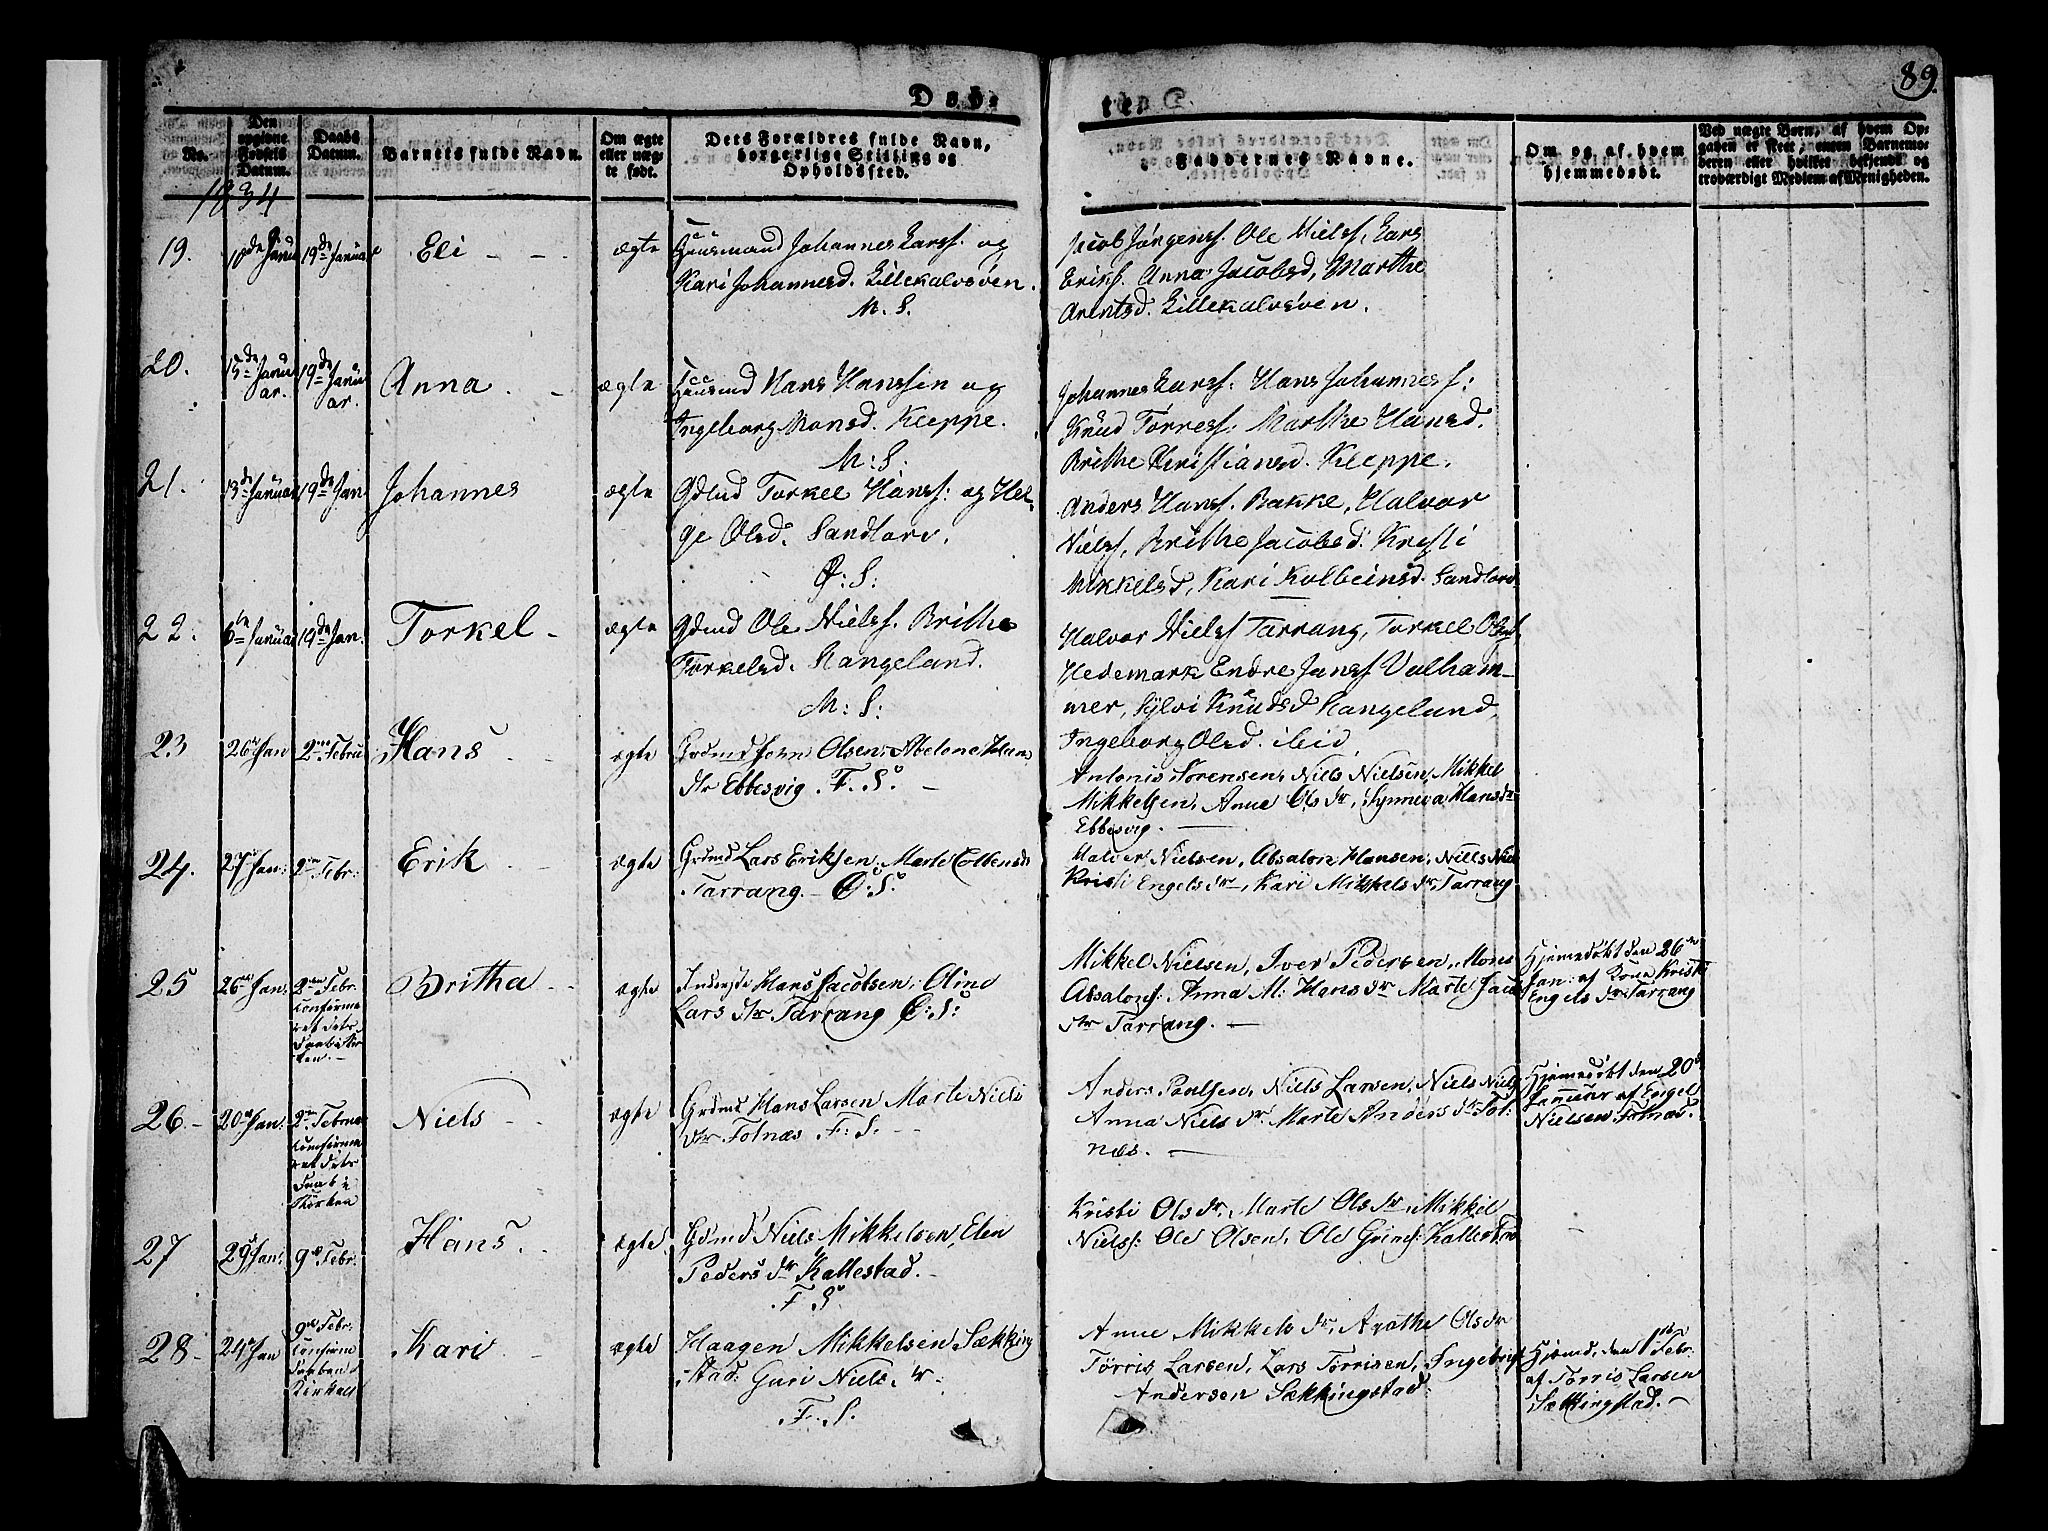 89.
Døb-
te
No.
Den
opgivne
Fødsels
Datum.
Daabs
Datum.
Barnets fulde Navn.
Om ægte
eller uæg-
te født.
Dets Forældres fulde Navn,
borgerlige Stilling og
Opholdssted.
Faddernes Navne.
Om og af hvem
hjemmedøbt.
Ved uægte Børn, af hvem Op-
gaven er skeet, enten Barnemo-
deren eller hvilket bekjendt og
troværdigt Medlem af Menigheden.
1834
19.
19de Januar
Eli
ægte
Huusmand Johannes Larss. og
Kari Johannesd. Lillekalvsöen.
M. S.
Jacob Jörgens. Ole Niels, Lars
Eriks. Anna Jacobsd, Marthe
Arentsd. Lillekalvsöen.
20.
15de Janu
ar.
19de Janu
ar.
Anna
ægte
Huusmd Hans Hanssen og
Ingeborg Monsd. Kleppe.
M: S:
Johannes Larss: Hans Johanness:
Knud Torress. Marthe Hansd.
Brithe Kristiansd. Kleppe.
21.
13de Januar
19de Jan
Johannes
ægte
Torkel Hanss: og Hel-
ge Olsd. Sandtorv.
Ø: S:
Anders Hanss. Bakke, Halvor
Nielss, Brithe Jacobsd: Kristi
Mikkelsd, Kari Kolbeinsd. Sandtorv
22.
6te Januar
19de Jan.
Torkel
ægte
Gdmd Ole Nielss. Brithe
Torkelsd. Hangeland.
M: S:
Halvor Nielss Tarrang, Torkel Olss.
Hedemark Endre Janss Valham-
mer, Sylvi Knudsd Hangeland,
Ingeborg Olsd. ibid,
23
26 Jan
2den Febru
Hans
ægte
Grdmd Olsen, Abelone Hans
dtr Ebbesvig. F. S.
Antonis Sörensen, Niels Nielsen, Mikkel
Mikkelsen, Anne Ols dr, Synneva Hans dr
Ebbesvig.
24.
27 Jan:
2den Febr:
Erik
ægte
Grdmd Lars Eriksen, Marte Colbens dr
Tarrang. Ø: S:
Halvor Nielsen, Absalon Hansen, Niels Niels
Kristi Engels dr, Kari Mikkels dr, Tarrang
25
26 Jan:
2den Febr.
Confirme
ret dets
Daab i Kir
ken.
Britha
ægte
Inderste Hans Jacobsen, Oline
Lars dtr Tarrang Ø: S:
Mikkel Nielsen, Iver Pedersen, Mons
Absalons: Anna M: Hans dr Marte Jacob
dtr Tarrang.
Hjemedöbt den 26
Jan: af Kona Kristi
Engels dr Tarrang
26
20 Jan:
2den Februar
Confirme
ret dets
Daab i
Kirken
Niels
ægte
Grdmd Hans Larsen Marte Niels
dtr Fotnæs F: S.
Anders Poulsen, Niels Larsen, Niels Niels
Anna Niels dr. Marte Anders dr Fot:
næs.
Hjemedöbt den 20
Januar af Engel
Nielsen Fotnæs.
27
29 Jan:
9de Febr:
Hans
ægte
Grdmd Niels Mikkelsen, Elen
Peders dr Kallestad.
F. S.
Kristi Ols dr, Marte Ols dr, Mikkel
Niels: Ole Olsen, Ole
28
24 Jan
9de Febr:
Confirme
Kari
ægte
Haagen Mikkelsen Sækking
stad: Guri Niels dr
F. S.
Anne Mikkels dr, Agathe Ols dr
Törris Larsen, Lars Törrisen, Ingebrigt
Andersen Sækkingstad:
Hjemd, den 1ste Febr:
af Törris Larsen
Sækkingstad.